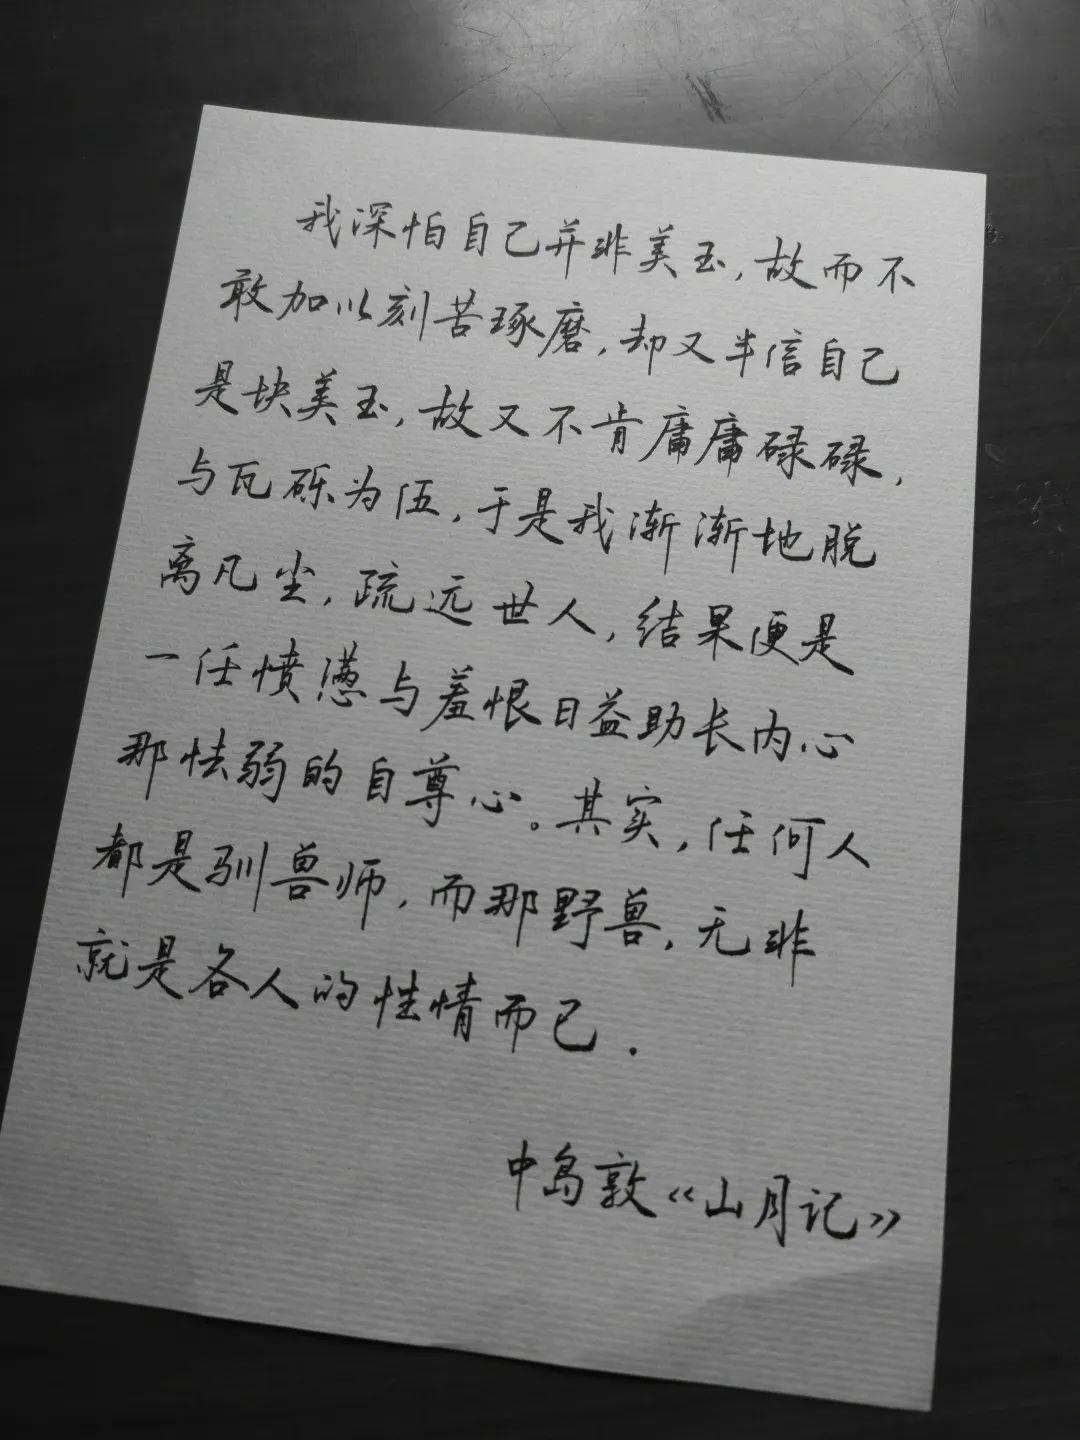 我深怕自己并非美玉，故而不
敢加以刻苦琢磨，却又半信自己
是块美玉，故又不肯庸庸碌碌，
与瓦砾为伍，于是我渐渐地脱
离凡尘，疏远世人，结果便是
一任愤懑与羞恨日益助长内心
那怯弱的自尊心。其实，任何人
都是驯兽师，而那野兽，无非
就是各人的性情而已．
中岛敦《山月记》